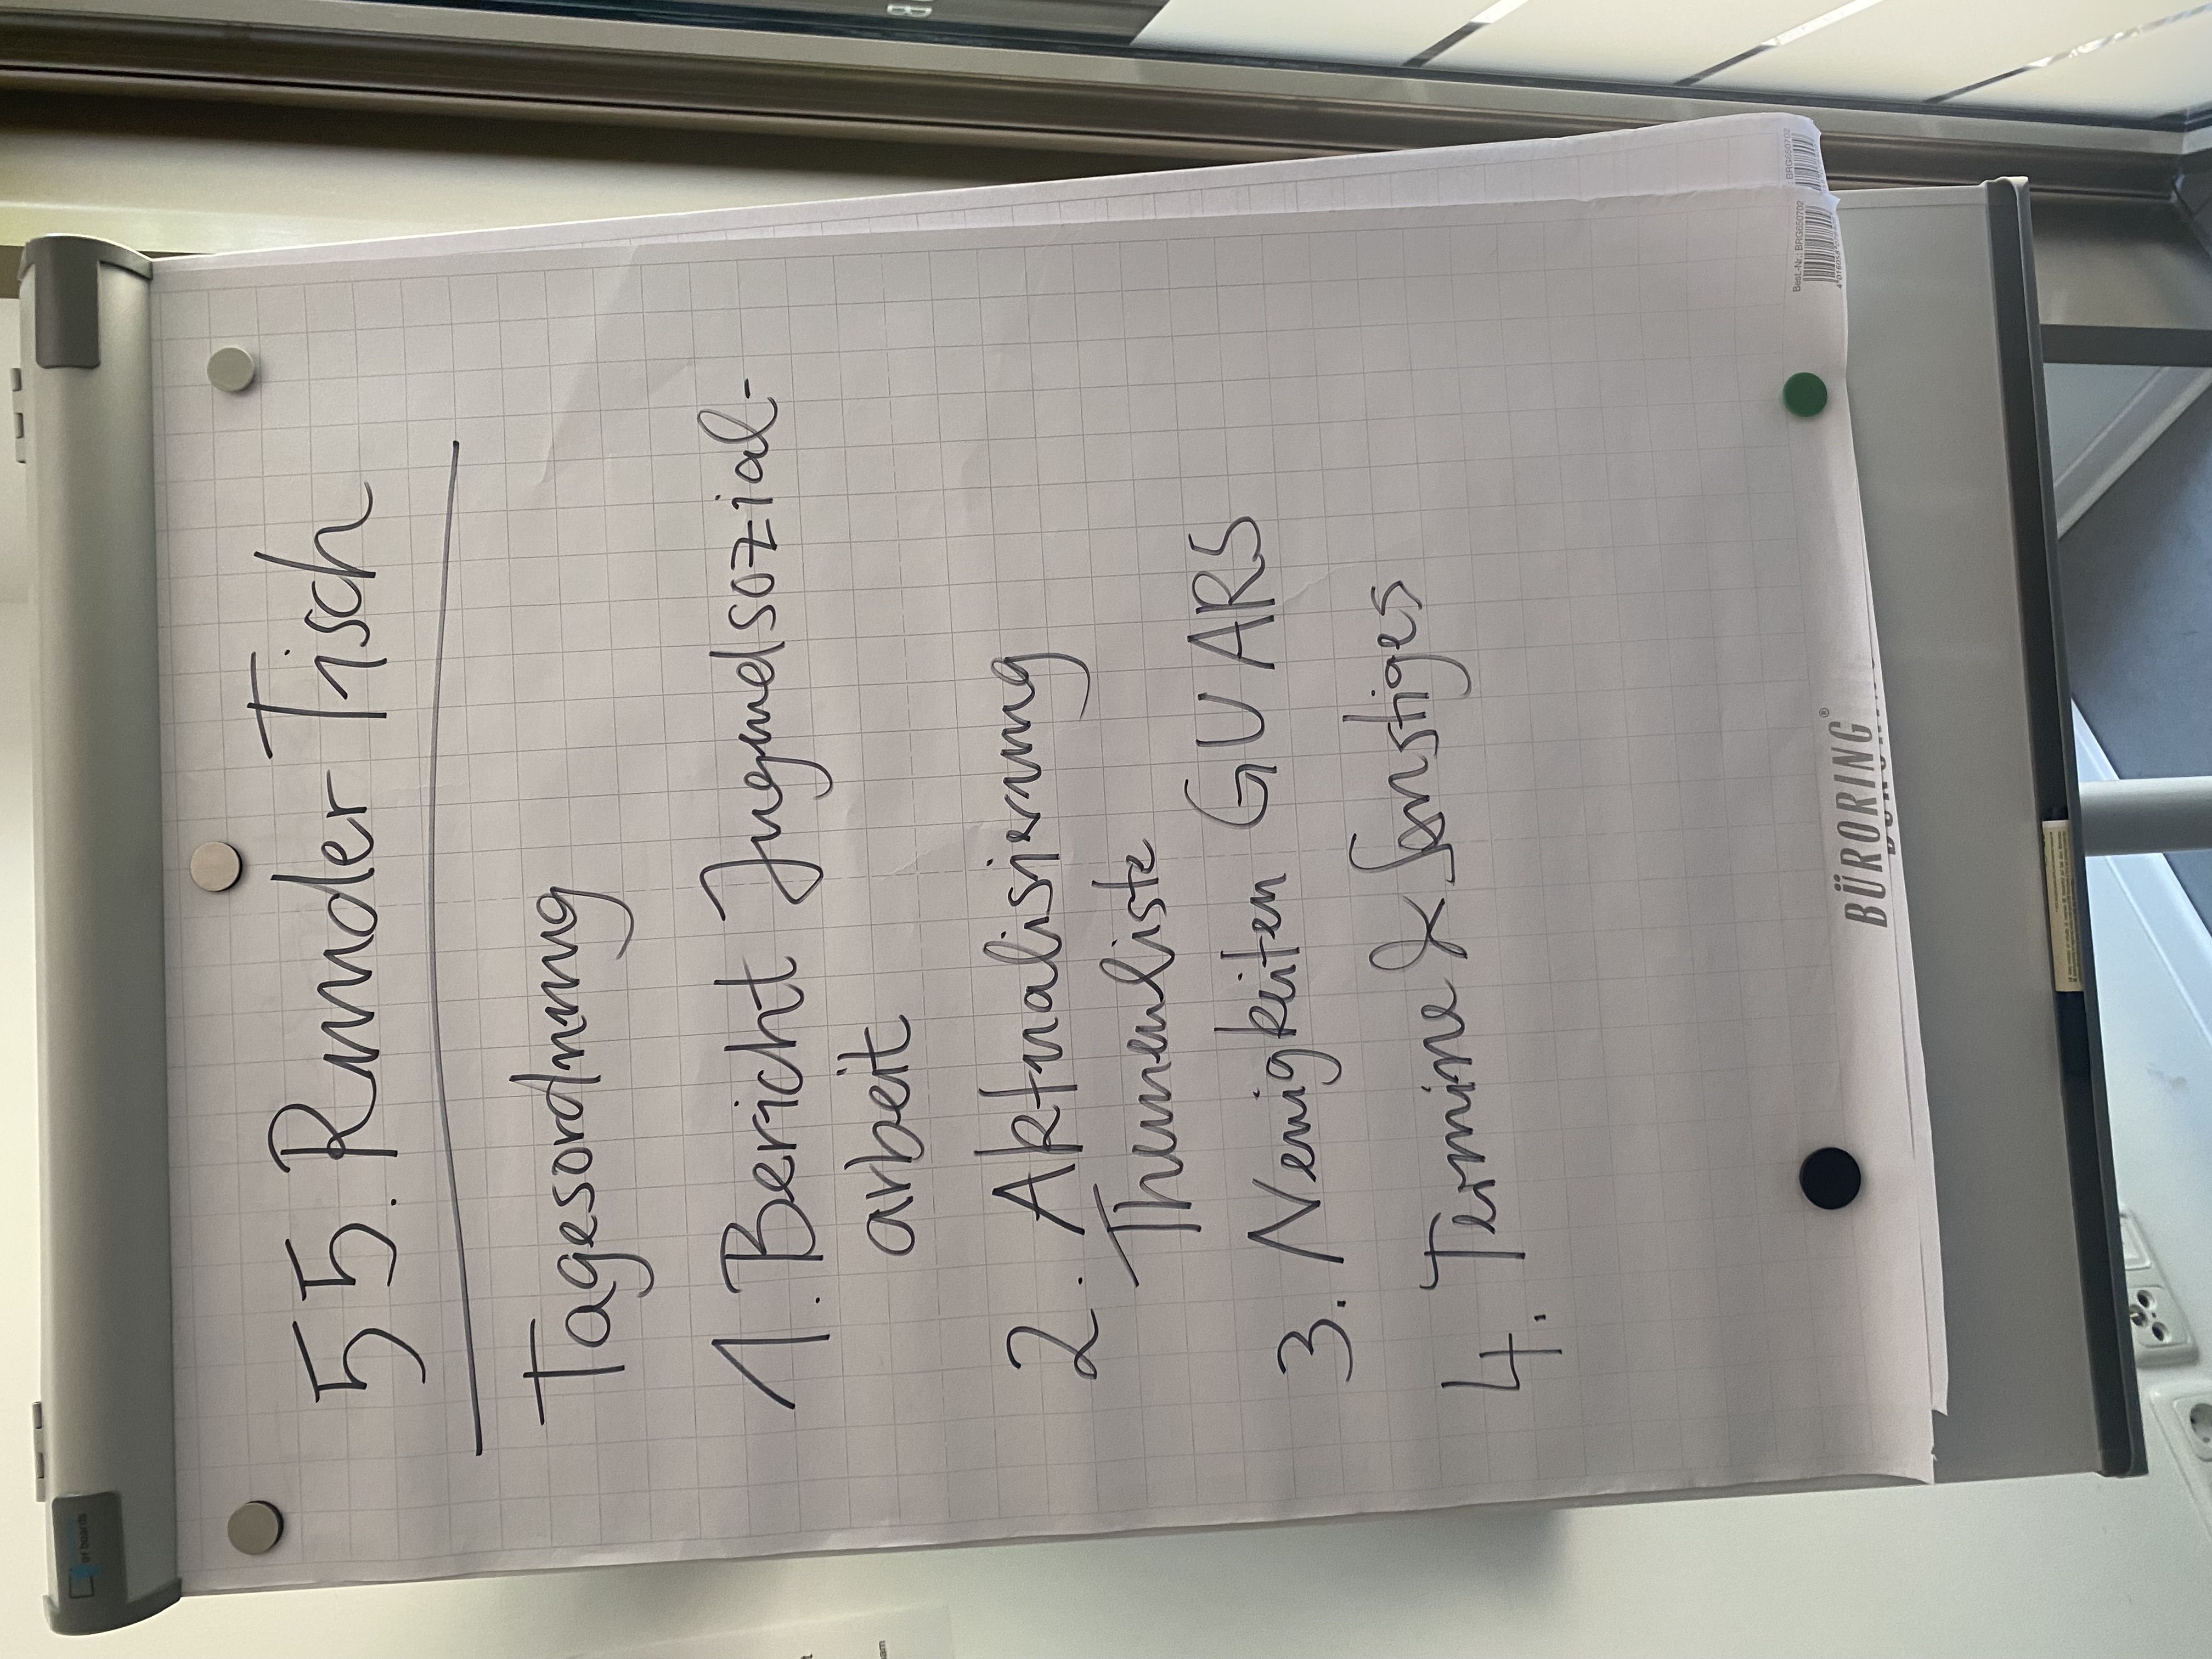 55. Runder Tisch
Tagesordnung
1. Bericht Jugendsozial-
arbeit
2. Aktualisierung
Themenliste
3. Neuigkeiten GU ARS
4. Termine & Sonstiges
BÜRORING®
Best.-Nr.: BRG650702